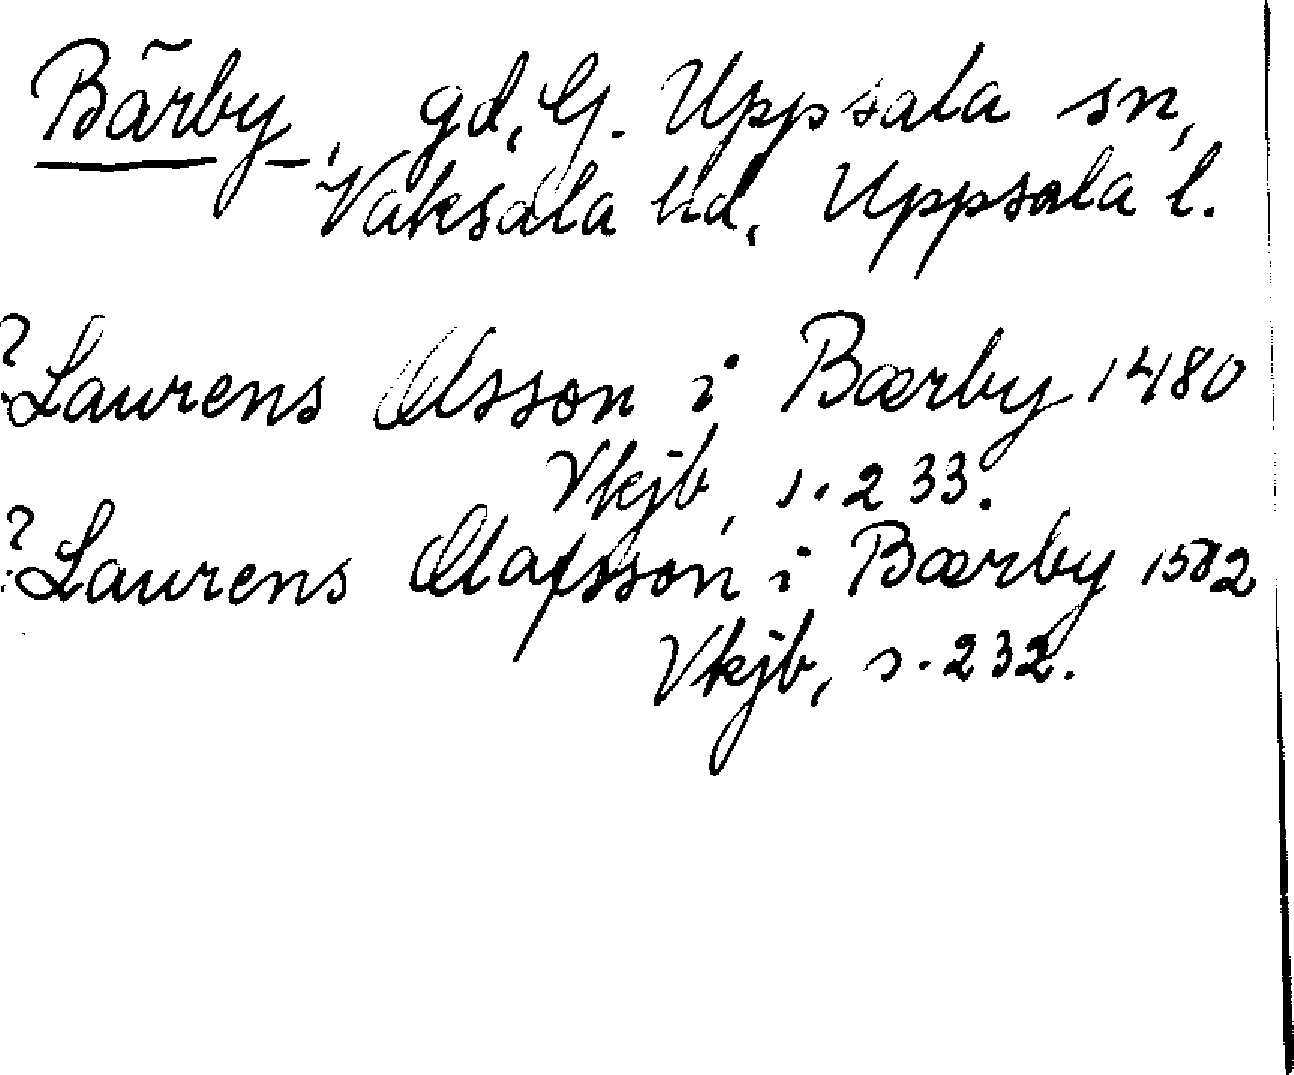 Bärby, gd, G. Uppsala sn,
Vaksala hd, Uppsala l.
? Laurens Olsson i Bærby 1480
Vkjb, s. 233.
? Laurens Olafsson i Bærby
Vkjb, s. 232.